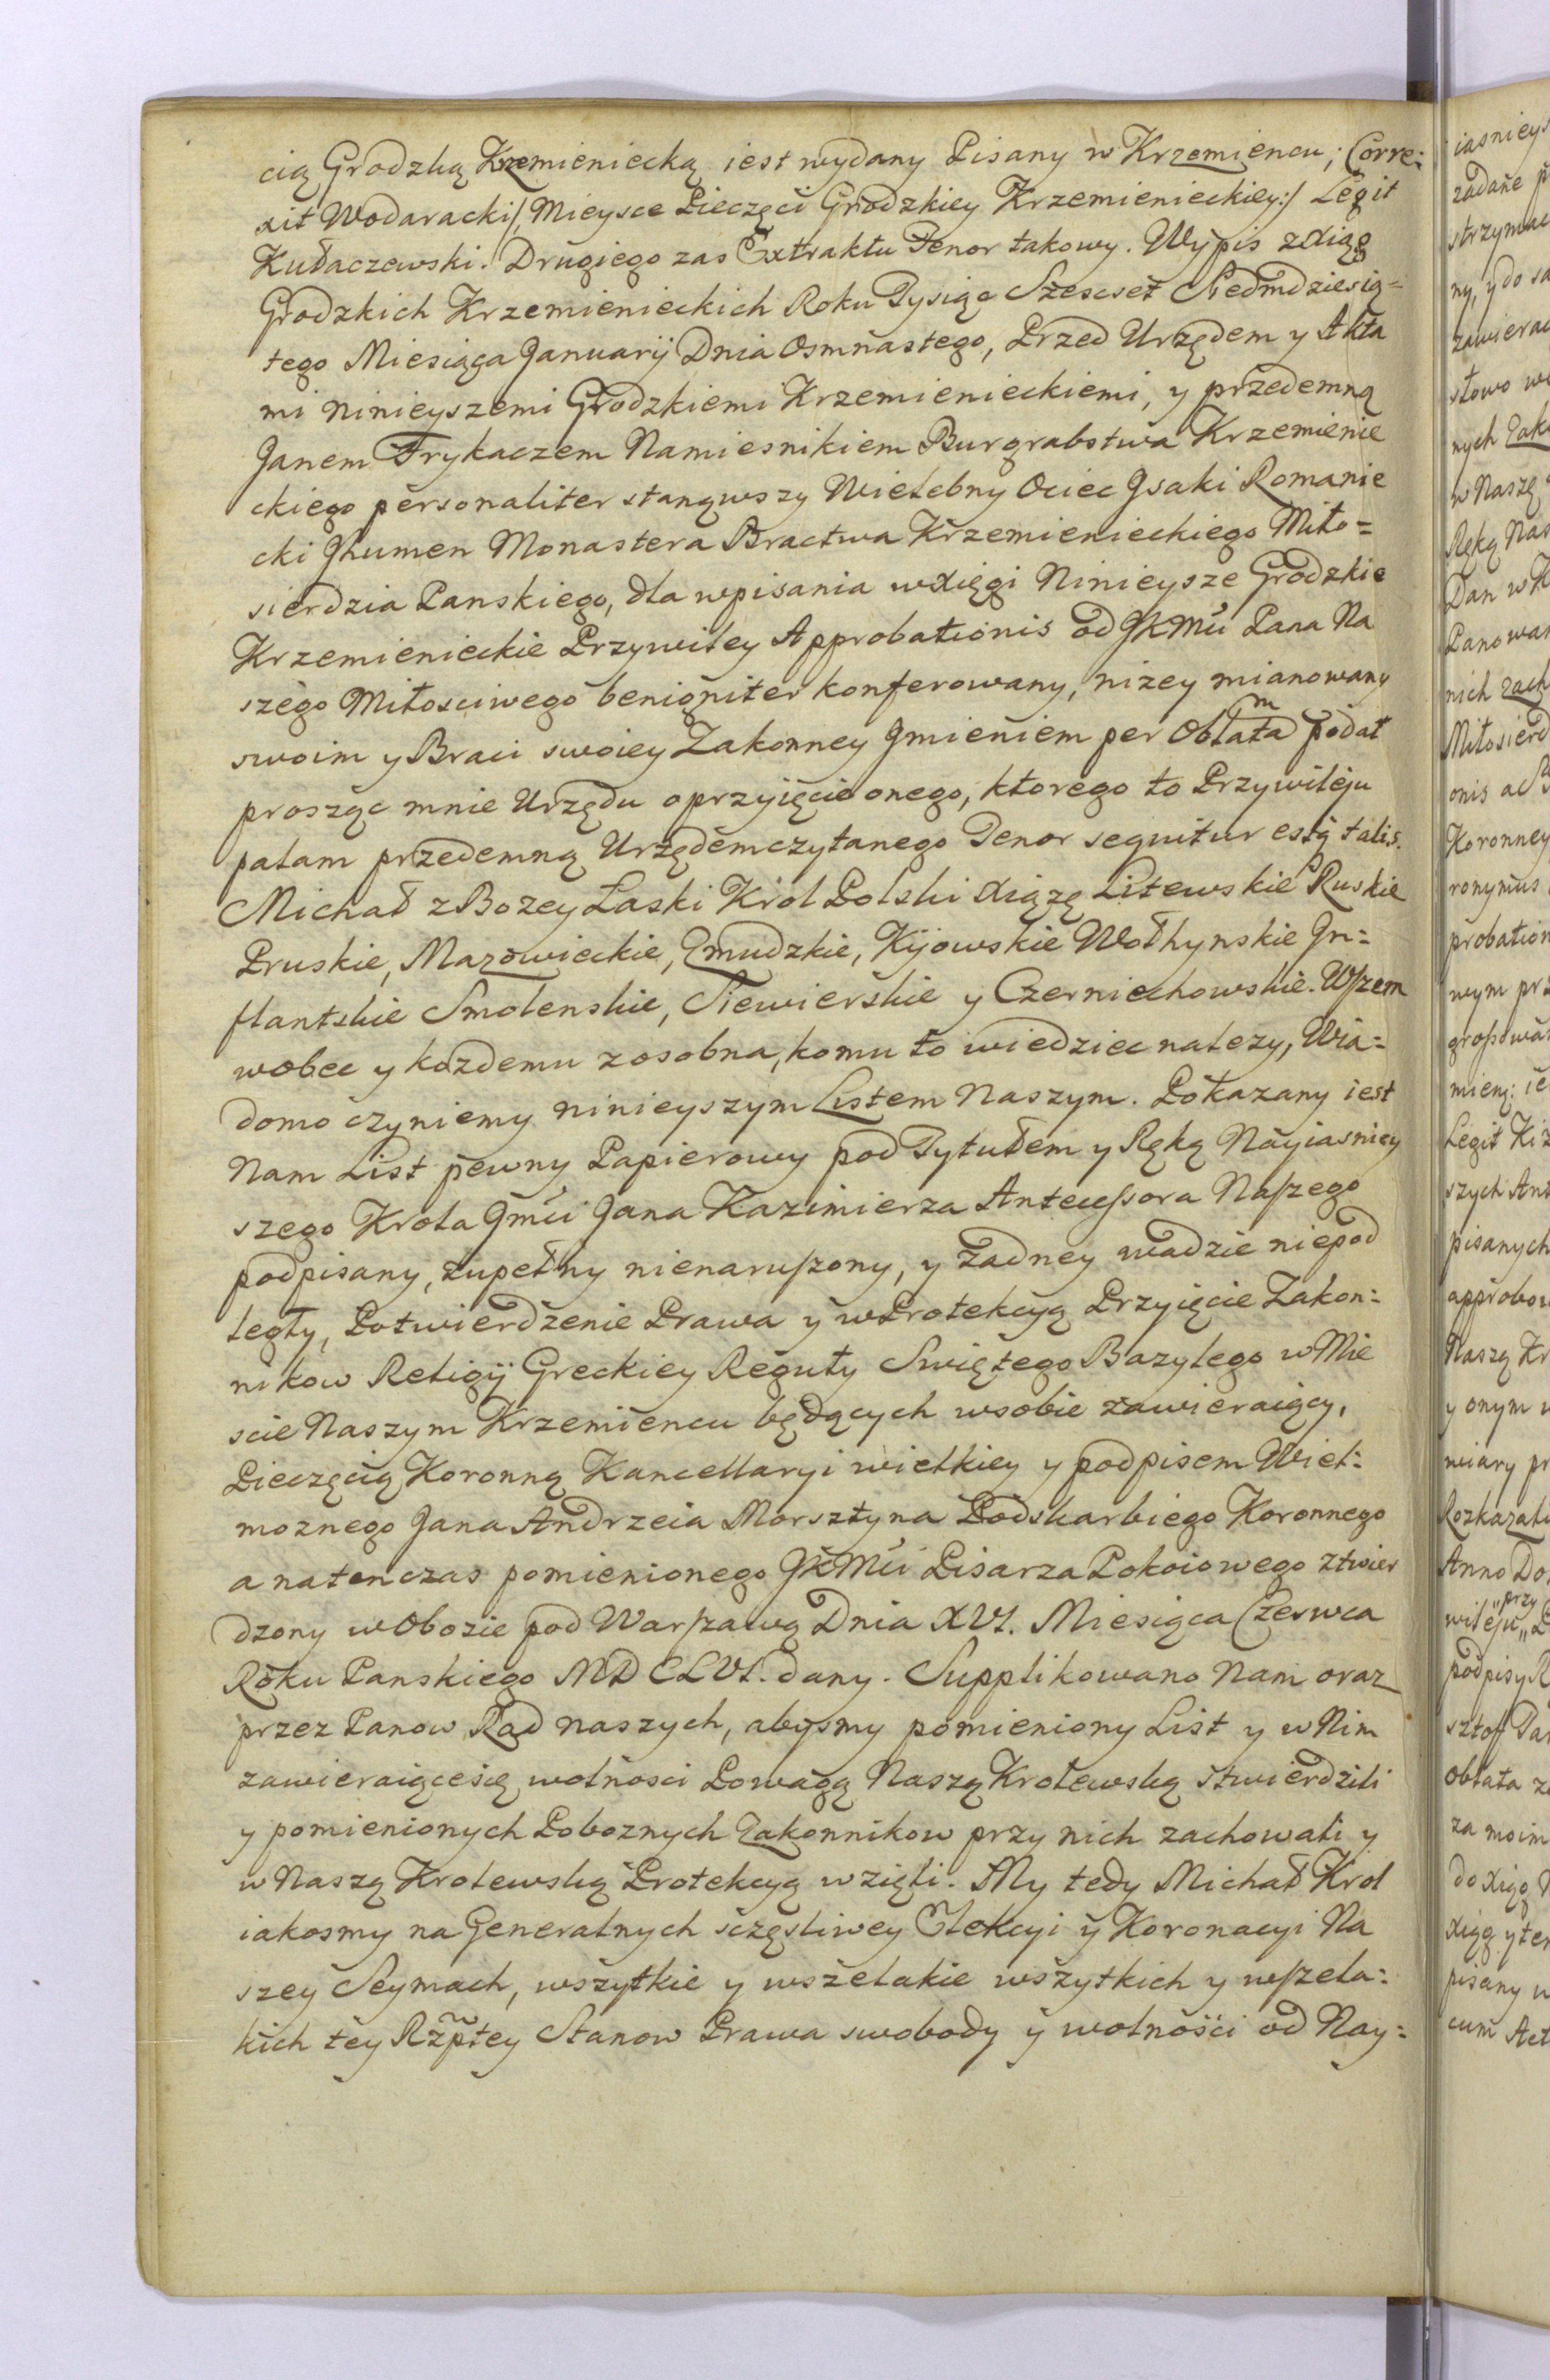 cią Grodzką Krzemieniecką iest wydany Pisany w Krzemiencu; Corre:
xit Wodaracki/, Mieysce Pieczęci Grodzkiey Krzemienieckiey:/ Legit
Kułaczewski. Drugiego zas Extraktu Tenor takowy. Wypis z Xiąg
Grodzkich Krzemienieckich Roku Tysiąc Szescset Siedmdziesią=
tego Miesiąca Januarij Dnia Osmnastego, Przed Urzędem y Akta
mi ninieyszemi Grodzkiemi Krzemienieckiemi, y przedemną
Janem Trykaczem Namiesnikiem Burgrabstwa Krzemienie
ckiego personaliter stanąwszy Wielebny Ociec Jsaki Romanie
cki Jhumen Monastera Bractwa Krzemienieckiego Miło=
sierdzia Panskiego, dla wpisania w Xięgi Ninieysze Grodzkie
Krzemienieckie Przywiley Approbationis od JKMci Pana Na
szego Miłosciwego benigniter konferowany, nizey mianowany
swoim y Braci swoiey Zakonney Jmieniem per Oblatam podał
prosząc mnie Urzędu o przyięcie onego, ktorego to Przywileju
palam przedemną Urzędem czytanego Tenor sequitur estq talis.
Michał z Bozey Łaski Krol Polski Xiązę Litewskie Ruskie
Pruskie, Mazowieckie, Zmudzkie, Kijowskie Wołhynskie Jn=
flantskie Smolenskie, Siewierskie y Czerniechowskie. Wszem
wobec y kozdemu zosobna, komu to wiedziec nalezy, Wia=
domo czyniemy ninieyszym Listem Naszym. Pokazany iest
Nam List pewny Papierowy pod Tytułem y Ręką Nayiasniey
szego Krola Jmci Jana Kazimierza Antecessora Naszego
podpisany, zupełny nienaruszony, y zadney wadzie niepod
legły, Potwierdzenie Prawa y w Protekcyą Przyięcie Zakon=
nikow Religij Greckiey Reguły Swiętego Bazylego w Mie
scie Naszym Krzemiencu będących wsobie zawieraiący,
Pieczęcią Koronną Kancellaryi wielkiey y podpisem Wiel=
moznego Jana Andrzeia Morsztyna Podskarbiego Koronnego
a natenczas pomienionego JKMci Pisarza Pokoiowego ztwier
dzony w Obozie pod Warszawą Dnia XVI. Miesiąca Czerwca
Roku Panskiego MDCLVI. dany. Supplikowano Nam oraz
przez Panow Rad naszych, abysmy pomieniony List y w Nim
zawieraiącesię wolnosci Powagą Naszą Krolewską stwierdzili
y pomienionych Poboznych Zakonnikow przy nich zachowali y
w Naszą Krolewską Protekcyą wzięli. My tedy Michał Krol
iakosmy na Generalnych sczęsliwey Elekcyi y Koronacyi Na
szey Seymach, wszytkie y wszelakie wszytkich y wszela=
kich tey Rzptey Stanow Prawa swobody y wolnosci od Nay=
iasniey
zadane
strzymac
ny, y do
zawierac
słowo
nych
w Naszę
Ręką Nas
Dan w K
Panowan
nich zach
Miłosierd
onis ac
Koronney
ronymus
probation
wym prz
grossowan
mieny: ie
Legit
szych Ant
pisanych
approbow
Naszą Kr
y onym
wiary pr
Rozkazali
Anno Do
przy
wileju
podpisy R
sztoff
oblata
za moim
do Xiąg
Xiąg y ten
pisany w
cum Act